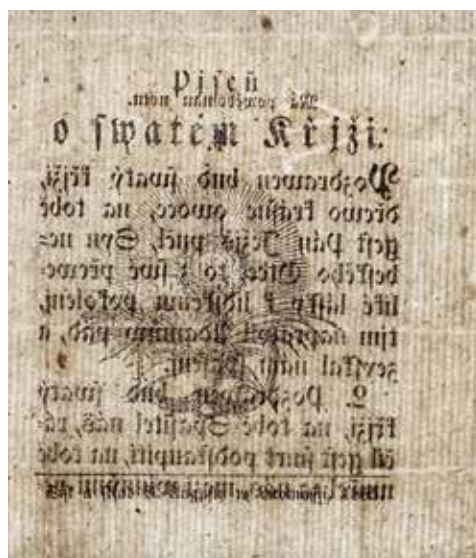 Pjſeň
o ſwatém Křjži.
Pozdrawen buď ſwatý křjži,
dřewo kraſne owoce, na tobě
geſt Pán Ježjš pněl, Syn ne=
beſkého Otce, to z ſwé přewe=
liké láſky k lidſkému pokolenj,
tjm naprawil Adamůw pád, a
nám ſpaſenj.
2. Pozdrawen buď ſwatý
křjži, na tobě Spaſitel náš, rá=
čil geſt ſmrt podſtaupiti, na tobě